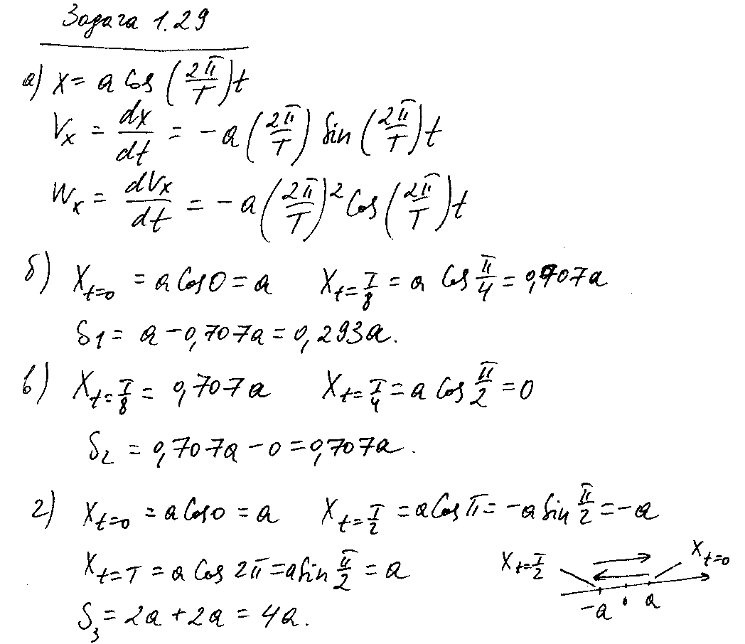 Задача 1.29
а) x = a cos (2π/T) t
Vx = dx/dt = -a (2π/T) sin (2π/T) t
Wx = dVx/dt = -a (2π/T)² cos (2π/T) t
б) X t=0 = a cos 0 = a X t=T/8 = a cos π/4 = 0,707a
S1 = a - 0,707a = 0,293a.
в) X t=T/8 = 0,707a X t=T/4 = a cos π/2 = 0
S2 = 0,707a - 0 = 0,707a.
г) X t=0 = a cos 0 = a X t=T/2 = a cos π = -a sin π/2 = -a
X t=T = a cos 2π = a sin π/2 = a
S3 = 2a + 2a = 4a.
X t=T/2 X t=0
-a 0 a